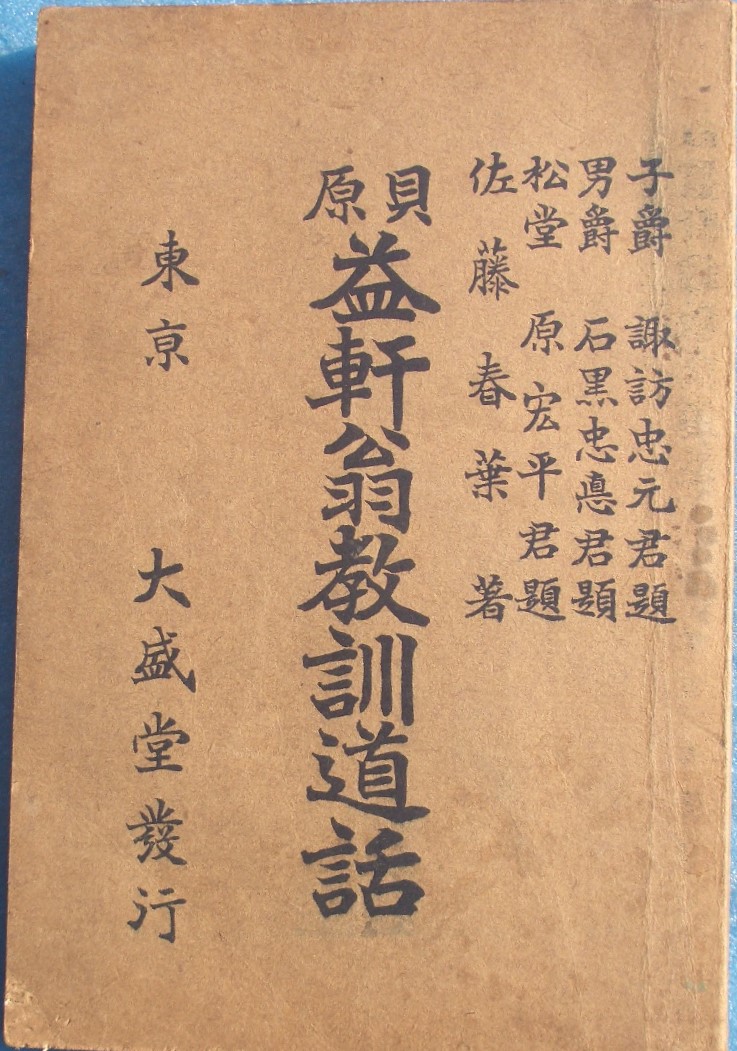 子爵 諏訪忠元君題
男爵 石黒忠悳君題
松堂 原宏平君題
佐藤春葉著
貝原益軒翁教訓道話
東京 大盛堂發行